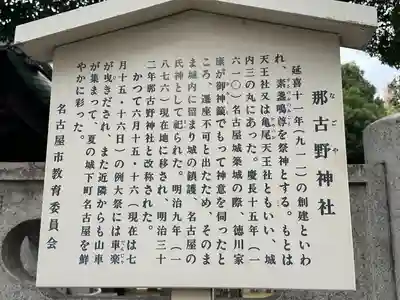 那古野神社
なごや
延喜十一年(九一一)の創建といわ
れ、素盞鳴尊を祭神とする。もとは
天王社又は亀尾天王社ともいい、城
内三の丸にあった。慶長十五年(一
六一〇)名古屋城築城の際、徳川家
康が御神籤でもって神意を伺ったと
ころ、遷座不可と出たため、そのま
ま城内に留まり城の鎮護、名古屋の
氏神として祀られた。明治九年(一
八七六)現在地に移され、明治三十
二年那古野神社と改称された。
かつて六月十五・十六(現在は七
月十五・十六日)の例大祭には車楽
が曳きだされ、また近隣からも山車
が集まって、夏の城下町名古屋を鮮
やかに彩った。
名古屋市教育委員会